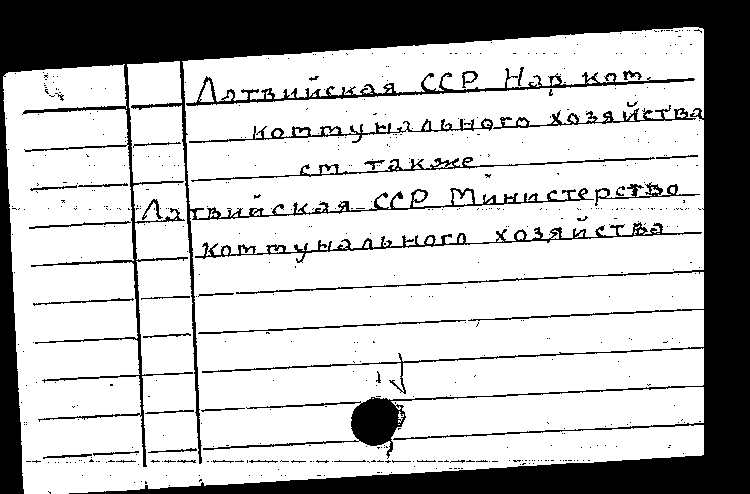 Латвийская ССР Нар. ком.
коммунального хозяйства
см. также
Латвийская ССР Министерство
коммунального хозяйства